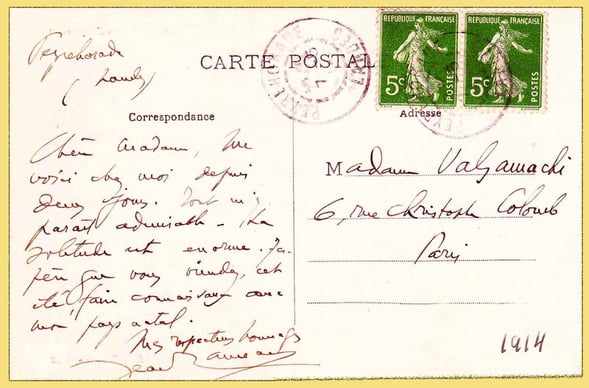 Peyrehorade
(Landes)
CARTE POSTALE
RÉPUBLIQUE FRANÇAISE
5c
POSTES
RÉPUBLIQUE FRANÇAISE
5c
POSTES
Correspondance
Chère Madame, Me
voici chez moi depuis
deux jours. Tout m'y
paraît admirable. La
solitude est énorme. J'es-
père que vous viendrez, cet
été, faire connaissance avec
mon pays natal.
Mes respectueux hommages
Jean Rameau
Adresse
Madame Valsamachi
6, rue Christophe Colomb
Paris
1914